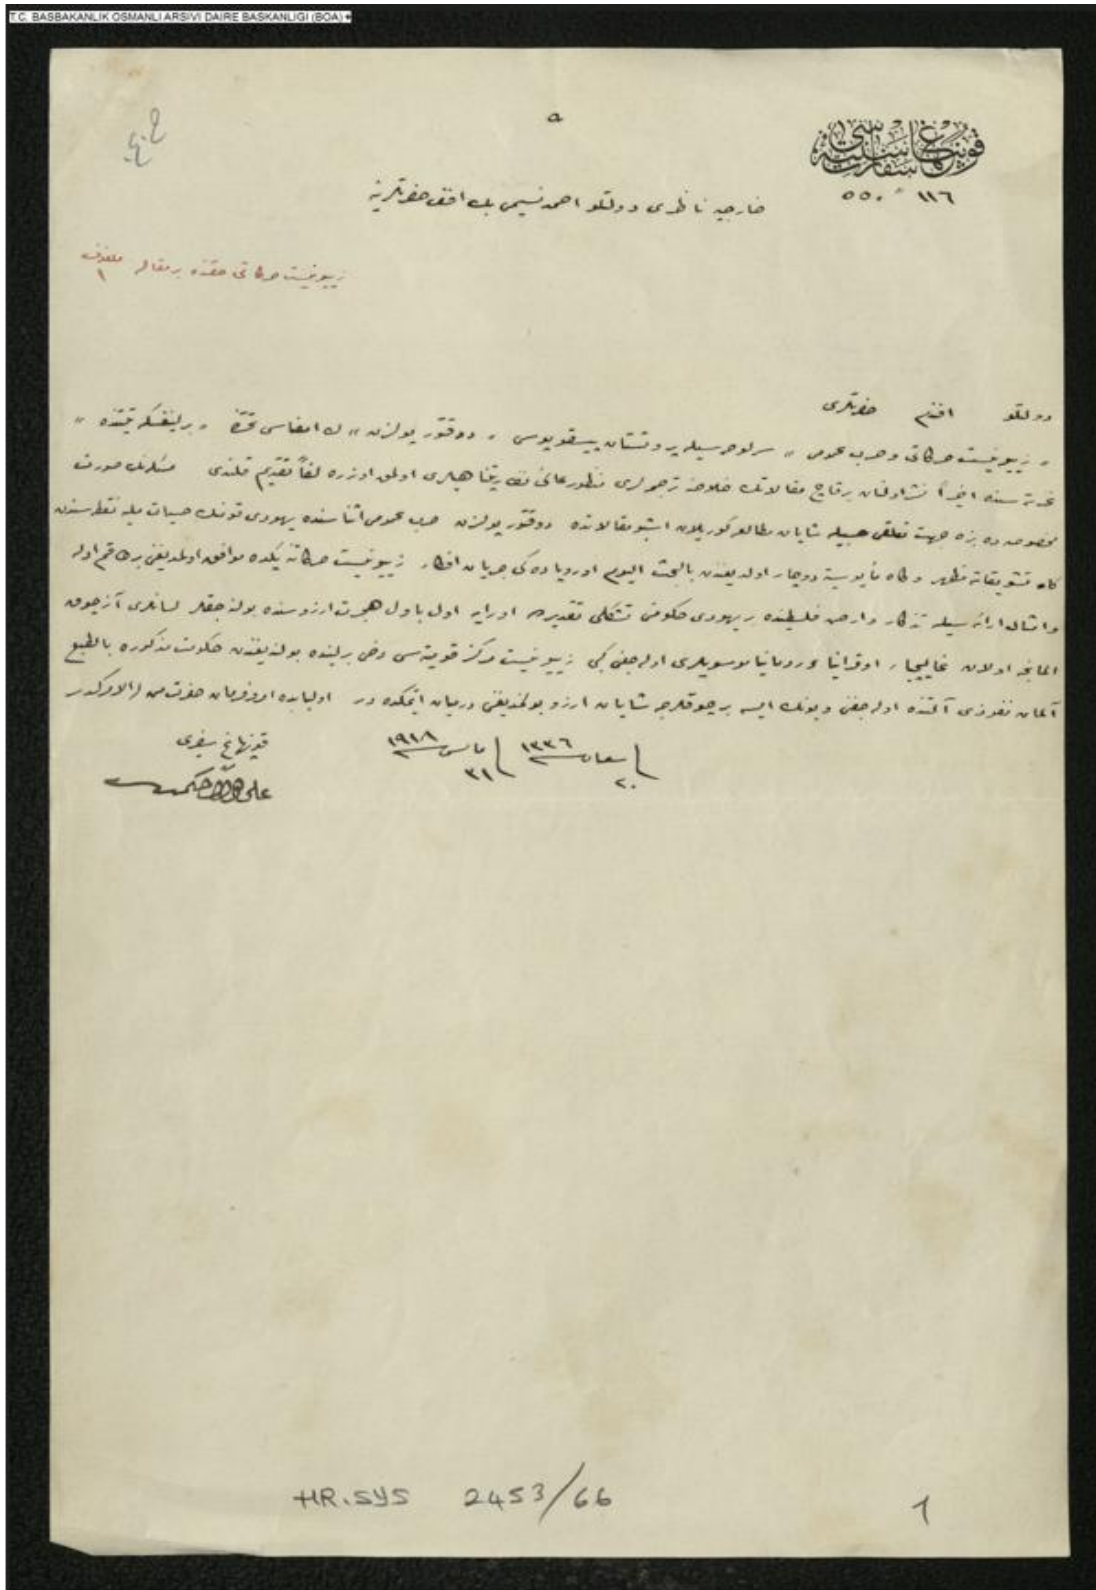 T.C. BASBAKANLIK OSMANLI ARSIVI DAIRE BASKANLIGI (BOA)
قوپنهاغ سفارت سنیه سی
٥
١١٦ ٥٥٠
خارجیه ناظری دولتلو احمد نسیمی بك افندی حضرتلرینه
زییونیست حركاتی حقنده بر مقاله ملفوف ١
دولتلو افندم حضرتلری
« زییونیست حركاتی وحرب عمومی » سرلوحه سیله پروتستان پیسقوپوسی « دوقتور پولزن » ك امضاسی تحتنده « برلینغسكه تیتنده »
غزته سنده اخیراً نشر اولنان برقاچ مقالاتك خلاصة ترجمه لری منظور عالئ نظارتپناهیلری اولمق اوزره لفاً تقدیم قلندی مسئله نك صورت
مخصوصه ده بزه جهت تعلقی حسبیله شایان مطالعه كوریلان اشبو مقالاتده دوقتور پولزن حرب عمومی اثناسنده یهودی قومنك حسیات ملیه نقطه سندن
كاه تشویقاته مظهر وكاه مأیوسیته دوچار اولدیغندن بالبحث الیوم اوروپاده كی جریان افكار زییونیست حركاتنه پكده موافق اولمدیغنی
وامثال ارائه سیله تذكار وارض فلسطینده بر یهودی حكومتی تشكلی تقدیرنده اورایه اول باول هجرت ارزوسنده بولنه جقلر لسانلری آز چوق
المانجه اولان غالیچیا، اوقرانیا و رومانیا موسویلری اوله جغی كبی زییونیست مركز قومیته سی دخی برلینده بولندیغندن حكومت مذكوره بالطبع
آلمان نفوذی آلتنده اوله جغنی وبونك ایسه بر چوقلرنجه شایان ارزو بولنمدیغنی درمیان ایتمكده در اولبابده امر وفرمان حضرت من له الامركدر
٢٠ شعبان ١٣٣٦ ٣١ مایس ١٩١٨
قوپنهاغ سفیری
حكمت
HR.SYS 2453/66
1